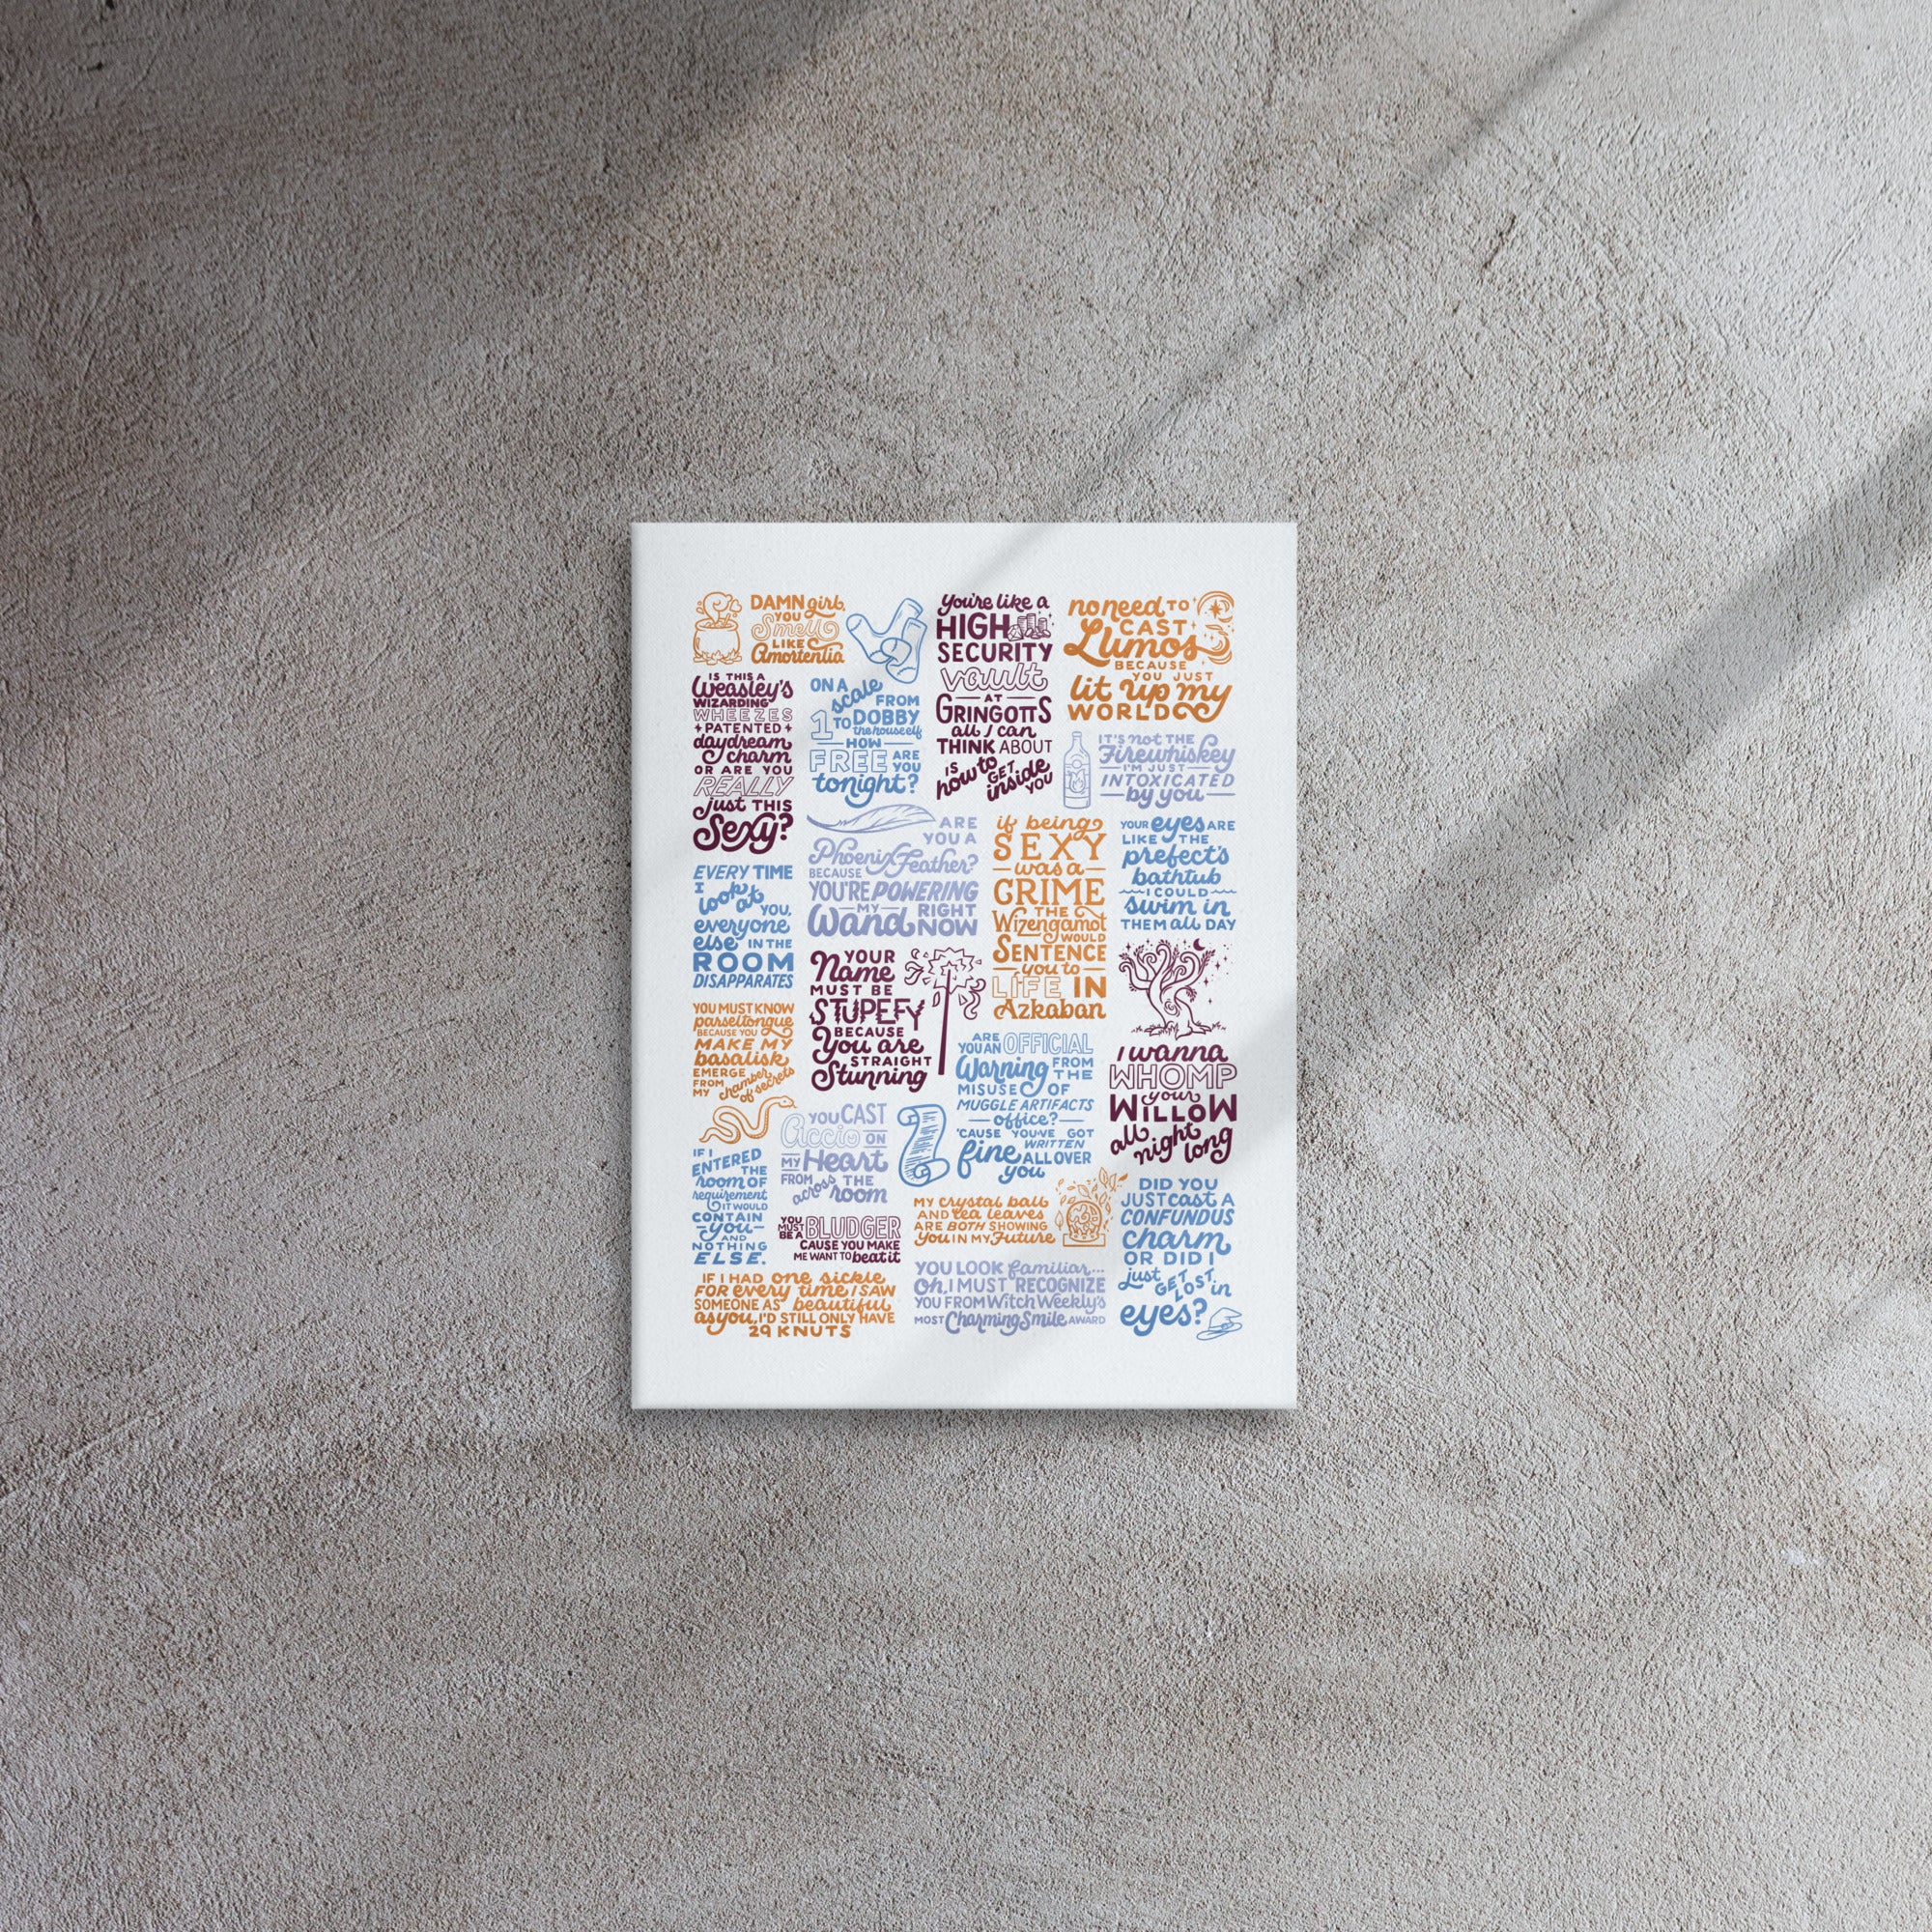 DAMN girl,
YOU
Smell
LIKE
Amortentia
You're like a
HIGH
SECURITY
vault
AT
GRINGOTTS
all I can
THINK ABOUT
IS
how to GET
inside
YOU
no need TO
CAST
Lumos
BECAUSE
YOU JUST
lit up my
WORLD
IS THIS A
Weasley's
WIZARDING
WHEEZES
PATENTED
daydream
charm
OR ARE YOU
REALLY
just THIS
Sexy?
ON A
scale FROM
1 TO DOBBY
the house elf
HOW
FREE ARE
YOU
tonight?
IT'S not THE
Firewhiskey
I'M JUST
INTOXICATED
by you
ARE
YOU A
Phoenix Feather?
BECAUSE
YOU'RE POWERING
MY
Wand RIGHT
NOW
if being
SEXY
was a
CRIME
THE
Wizengamot
WOULD
SENTENCE
you to
LIFE IN
Azkaban
YOUR eyes ARE
LIKE THE
prefect's
bathtub
I COULD
swim in
THEM all DAY
EVERY TIME
I look at YOU,
everyone
else IN THE
ROOM
DISAPPARATES
YOUR
Name
MUST BE
STUPEFY
BECAUSE
You are
STRAIGHT
Stunning
YOU MUST KNOW
parseltongue
BECAUSE YOU
MAKE MY
basalisk
EMERGE
FROM
MY chamber
of secrets
ARE
YOU AN OFFICIAL
Warning FROM
THE
MISUSE OF
MUGGLE ARTIFACTS
office?
'CAUSE YOU'VE GOT
WRITTEN
fine ALL OVER
you
I wanna
WHOMP
your
WILLOW
all
night
long
YOU CAST
Accio ON
MY Heart
FROM across THE
room
IF I
ENTERED
THE
room OF
requirement
IT WOULD
CONTAIN
you
AND
NOTHING
ELSE.
YOU
MUST
BE A BLUDGER
CAUSE YOU MAKE
ME WANT TO beat it
MY crystal ball
AND tea leaves
ARE BOTH SHOWING
You IN MY Future
DID YOU
JUST cast A
CONFUNDUS
charm
OR DID I
just GET
LOST in
eyes?
IF I HAD one sickle
FOR every time I SAW
SOMEONE AS beautiful
as you, I'D STILL ONLY HAVE
29 KNUTS
YOU LOOK familiar...
Oh, I MUST RECOGNIZE
YOU FROM Witch Weekly's
MOST Charming Smile AWARD